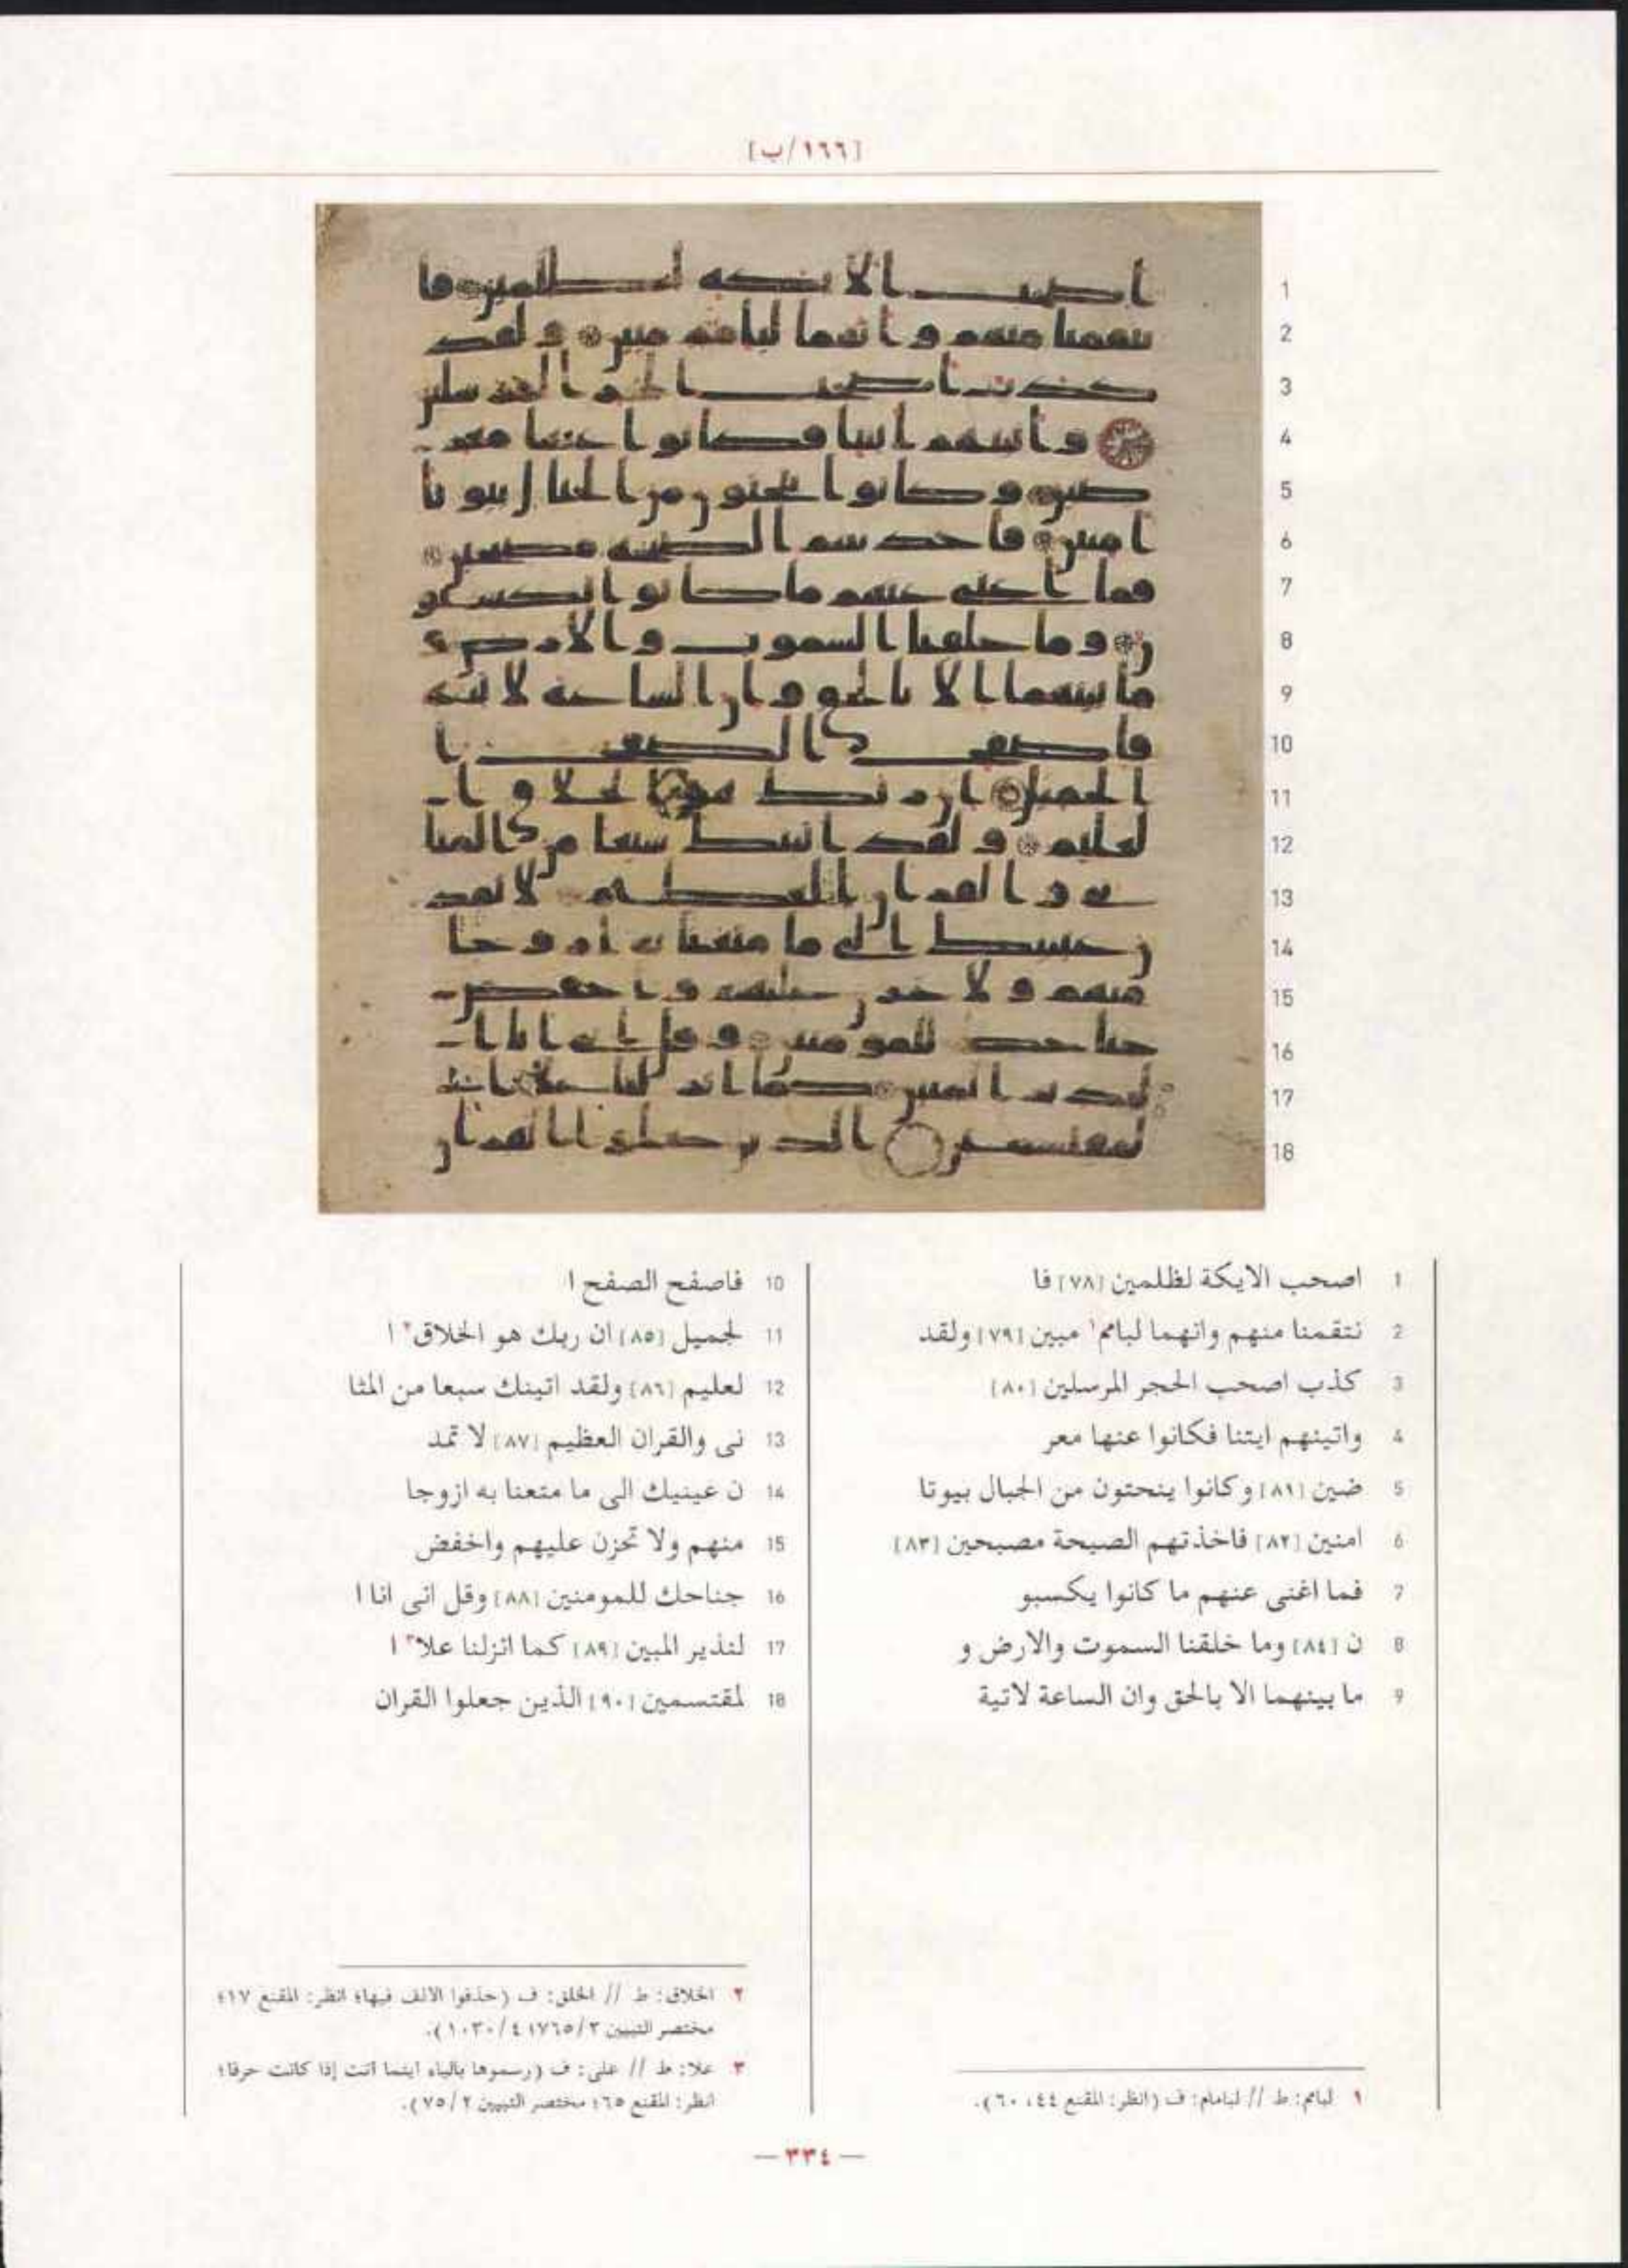 [١٦٦/ب]
1
2
3
4
5
6
7
8
9
10
11
12
13
14
15
16
17
18
1 اصحب الايكة لظلمين [٧٨] فا
2 نتقمنا منهم وانهما لبامم١ مبين [٧٩] ولقد
3 كذب اصحب الحجر المرسلين [٨٠]
4 واتينهم ايتنا فكانوا عنها معر
5 ضين [٨١] وكانوا ينحتون من الجبال بيوتا
6 امنين [٨٢] فاخذتهم الصيحة مصبحين [٨٣]
7 فما اغنى عنهم ما كانوا يكسبو
8 ن [٨٤] وما خلقنا السموت والارض و
9 ما بينهما الا بالحق وان الساعة لاتية
١ لبامم: ط // لبامام: ف (انظر: المقنع ٤٤، ٦٠).
10 فاصفح الصفح ا
11 لجميل [٨٥] ان ربك هو الخلاق٢ ا
12 لعليم [٨٦] ولقد اتينك سبعا من المثا
13 نى والقران العظيم [٨٧] لا تمد
14 ن عينيك الى ما متعنا به ازوجا
15 منهم ولا تحزن عليهم واخفض
16 جناحك للمومنين [٨٨] وقل انى انا ا
17 لنذير المبين [٨٩] كما انزلنا علا٣ ا
18 لمقتسمين [٩٠] الذين جعلوا القران
٢ الخلاق: ط // الخلق: ف (حذفوا الالف فيها؛ انظر: المقنع ١٧؛
مختصر التبيين ٣/٧٦٥؛ ٤/١٠٣٠).
٣ علا: ط // على: ف (رسموها بالياء اينما أتت إذا كانت حرفا؛
انظر: المقنع ٦٥؛ مختصر التبيين ٢/٧٥).
— ٣٣٤ —